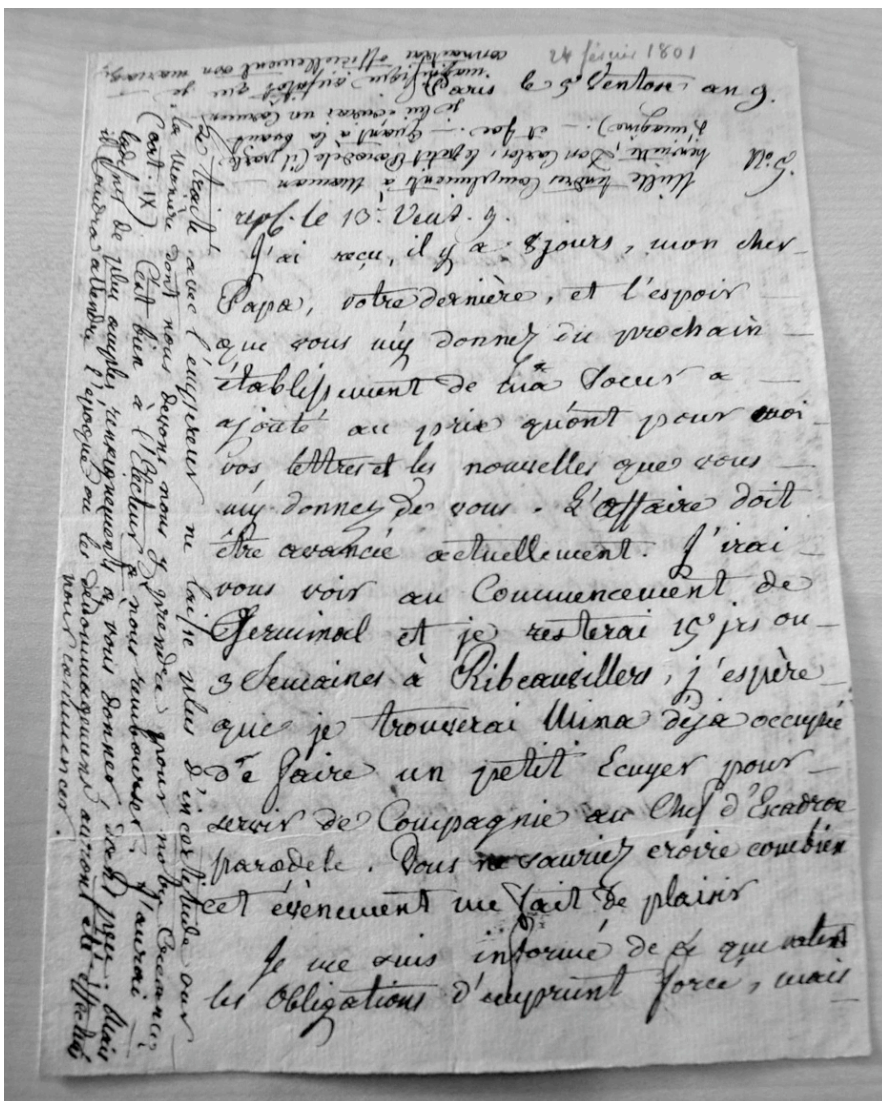 24 février 1801
Paris le 5 Ventose an 9.
repf. le 13. Vent. 9.
J'ai recu, il y a 8 jours, mon cher
Papa, votre dernière, et l'espoir
que vous m'y donnez du prochain
établissement de ma Soeur a
ajouté au prix qu'ont pour moi
vos lettres et les nouvelles que vous
m'y donnez de vous. L'affaire doit
être avancée actuellement. J'irai
vous voir au Commencement de
Germinal et je resterai 15 jrs ou
3 Semaines à Ribeauvillers, j'espère
que je trouverai Mina déja occupée
de faire un petit Ecuyer pour
servir de Compagnie au Chef d'Escadron
paradele. Vous ne sauriez croire combien
cet évènement me fait de plaisir
Je me suis informé de ce que valent
les Obligations d'emprunt forcé, mais
Le traité avec l'empereur ne laisse plus d'incertitude sur
la manière dont nous devons nous y prendre pour notre Creance
(art. IX). C'est bien à l'Electeur à nous rembourser, j'aurai
de plus amples renseignements à vous donner, dans peu. Mais
il faudra attendre l'époque ou les dédommagemens auront été effectués
pour commencer.
P.S. Mille tendres Complimens à Maman
henriette, Don Carlos, le petit Paradele (il parle
j'imagine) - et fac. - Quant à la
je lui écrirai un
magnifique aussitot que je
connaitrai officiellement son mariage